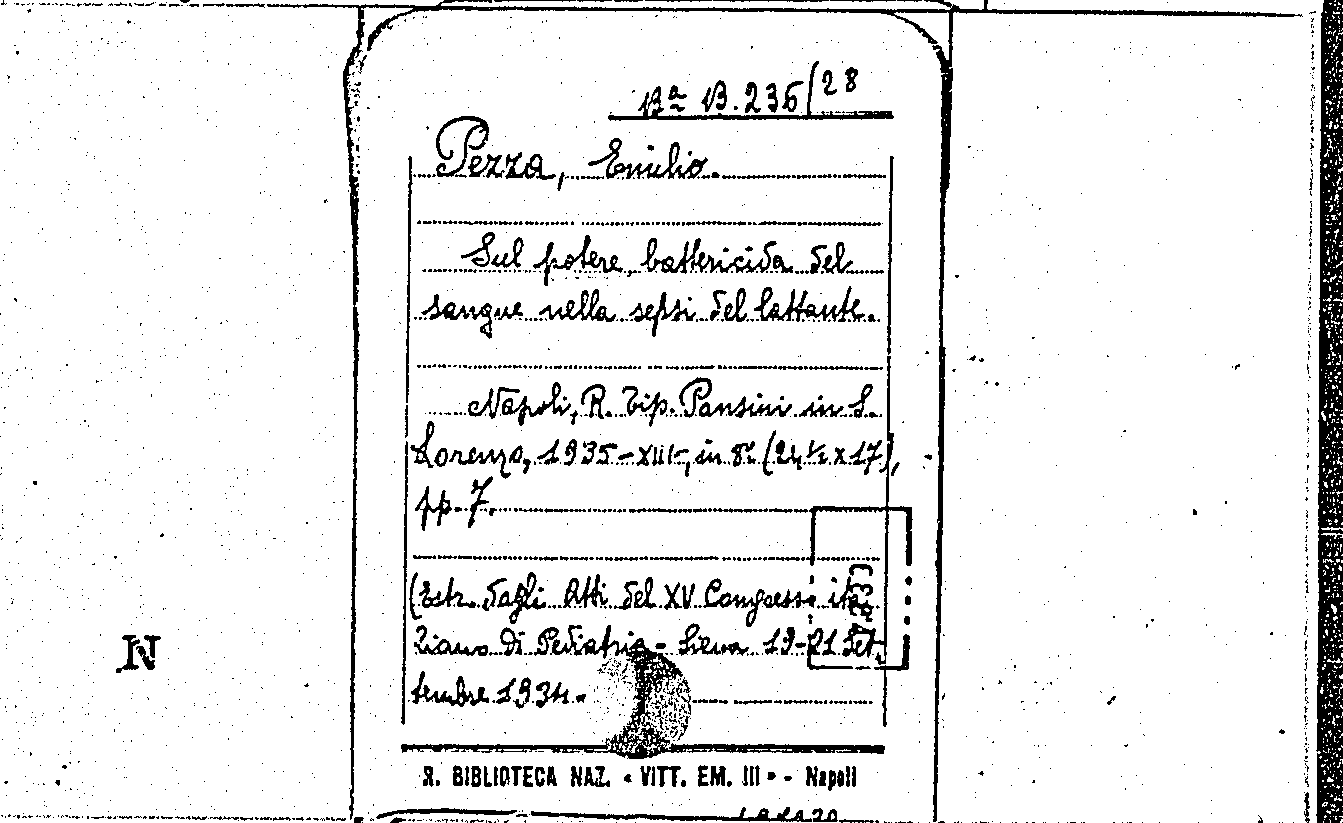 Bª B.235/28
Pezza, Emilio.
Sul potere battericida del
sangue nella sepsi del lattante.
Napoli, R. Tip. Pansini in S.
Lorenzo, 1935-XIII-, in 8º (24½ x 17),
pp. 7.
(Estr. dagli Atti del XV Congresso ita
liano di Pediatria - Siena 19-21 Set-
tembre 1934.-
N
R. BIBLIOTECA NAZ. « VITT. EM. III » - Napoli